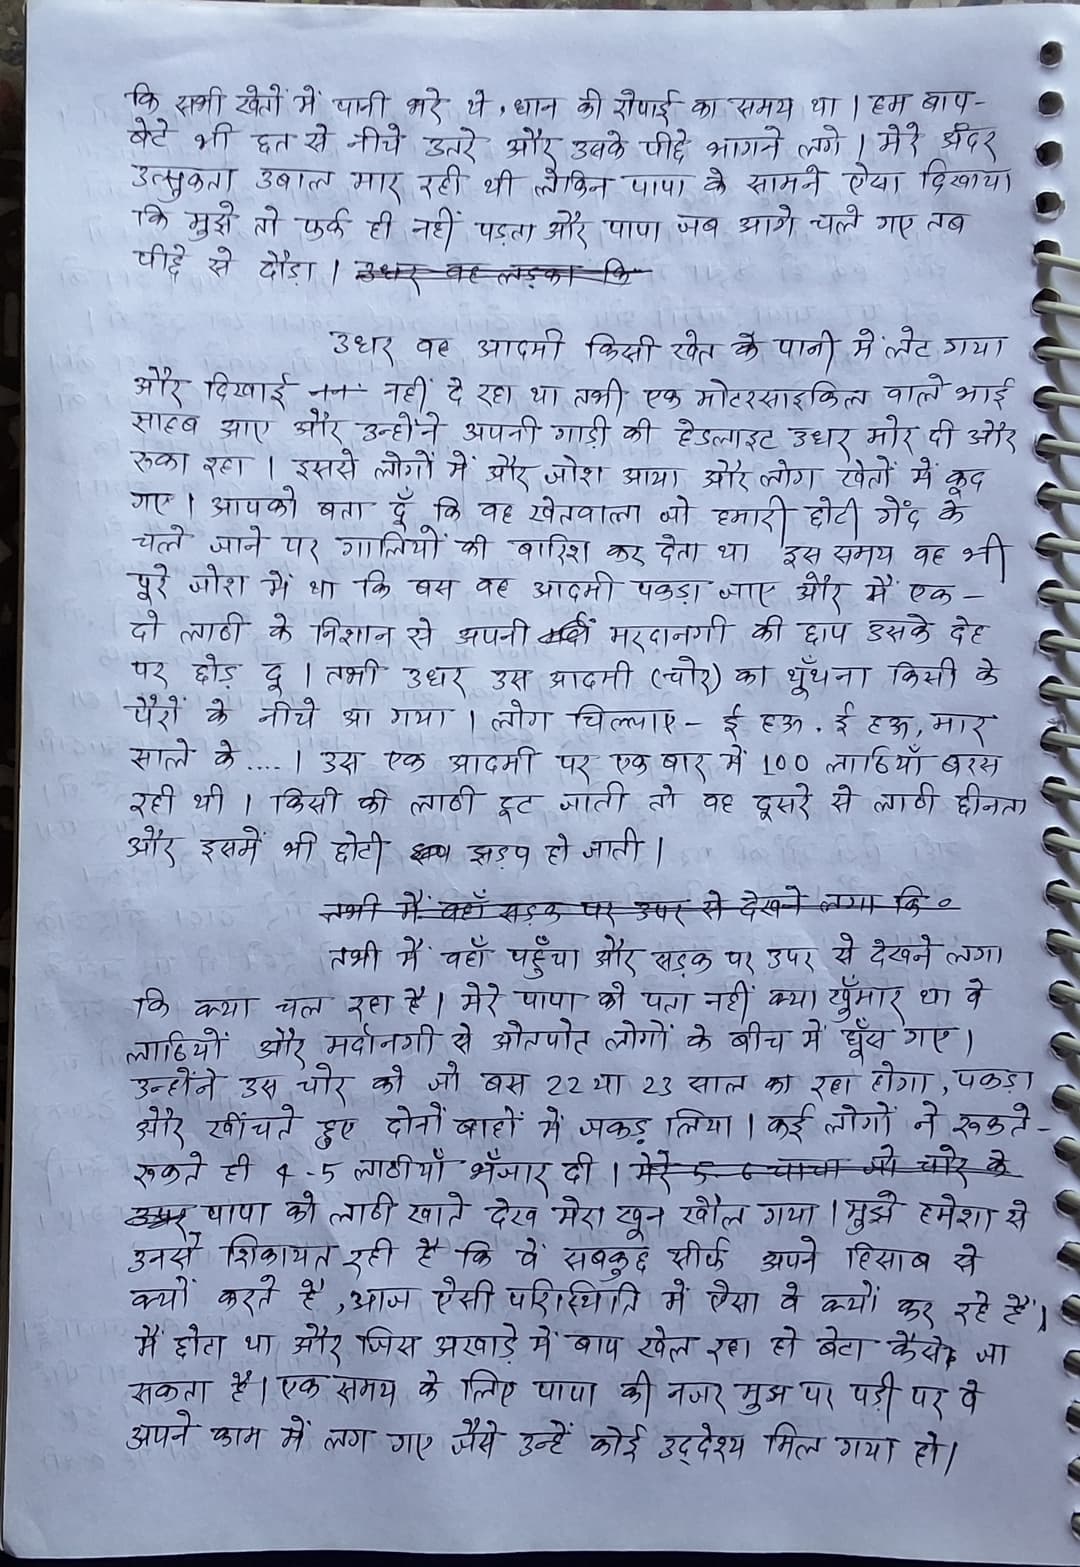 कि सभी खेतों में पानी भरे थे, धान की रोपाई का समय था। हम बाप-
बेटे भी छत से नीचे उतरे और उसके पीछे भागने लगे। मेरे अंदर
उत्सुकता उबाल मार रही थी लेकिन पापा के सामने ऐसा दिखाया
कि मुझे तो फ़र्क ही नहीं पड़ता और पापा जब आगे चले गए तब
पीछे से दौड़ा। उधर वह लड़का कि
उधर वह आदमी किसी खेत के पानी में लेट गया
और दिखाई नन नहीं दे रहा था तभी एक मोटरसाइकिल वाले भाई
साहब आए और उन्होंने अपनी गाड़ी की हेडलाइट उधर मोर दी और
रुका रहा। इससे लोगों में और जोश आया और लोग खेतों में कूद
गए। आपको बता दूँ कि वह खेतवाला जो हमारी छोटी गेंद के
चले जाने पर गालियों की बारिश कर देता था इस समय वह भी
पूरे जोश में था कि बस वह आदमी पकड़ा जाए और मैं एक-
दो लाठी के निशान से अपनी मरदानगी की छाप उसके देह
पर छोड़ दू। तभी उधर उस आदमी (चोर) का थूँथना किसी के
पैरों के नीचे आ गया। लोग चिल्लाए - ई हऊ. ई हऊ, मार
साले के....। उस एक आदमी पर एक बार में 100 लाठियाँ बरस
रही थी। किसी की लाठी टूट जाती तो वह दूसरे से लाठी छीनता
और इसमें भी छोटी झड़प हो जाती।
तभी मैं वहाँ सड़क पर उपर से देखने लगा कि
तभी मैं वहाँ पहुँचा और सड़क पर उपर से देखने लगा
कि क्या चल रहा है। मेरे पापा को पता नहीं क्या खुँमार था वे
लाठियों और मर्दानगी से ओतपोत लोगों के बीच में घूँस गए।
उन्होंने उस चोर को जो बस 22 या 23 साल का रहा होगा, पकड़ा
और खींचते हुए दोनों बाहों में जकड़ लिया। कई लोगों ने रूकते-
रूकते ही 4-5 लाठीयाँ भँजार दी। मेरे 5-6 चाचा जो चोर के
उपर पापा को लाठी खाते देख मेरा खून खौल गया। मुझे हमेशा से
उनसे शिकायत रही है कि वें सबकुछ सीर्फ अपने हिसाब से
क्यों करते है, आज ऐसी परिस्थिति में ऐसा वे क्यों कर रहे हैं।
मैं छोटा था और जिस अखाड़े में बाप खेल रहा हो बेटा कैसे जा
सकता है। एक समय के लिए पापा की नजर मुझ पर पड़ी पर वे
अपने काम में लग गए जैसे उन्हें कोई उद्देश्य मिल गया हो।